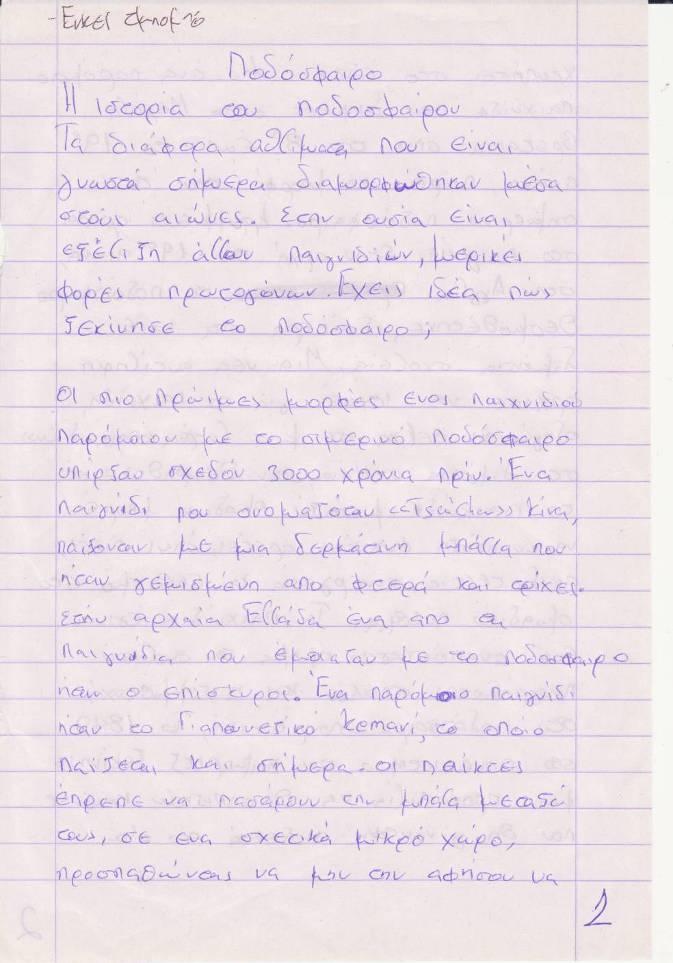 Ποδόσφαιρο
Η ιστορία του ποδοσφαίρου
Τα διάφορα αθλήματα που είναι
γνωστά σήμερα διαμορφώθηκαν μέσα
στους αιώνες. Στην ουσία είναι
εξέλιξη άλλων παιγνιδιών, μερικές
φορές πρωτογόνων. Έχεις ιδέα πώς
ξεκίνησε το ποδόσφαιρο;
Οι πιο πρώιμες μορφές ενος παιχνιδιού
παρόμοιου με το σιμερινό ποδόσφαιρο
υπιρξαν σχεδόν 3000 χρόνια πρίν. Ένα
παιγνίδι που ονοματόταν «Tsúchu» Κίνα,
παιζονταν με μια δερμάτινη μπάλλα που
ήταν γεμισμένη απο φτερά και τρίχες.
Στήν αρχαία Ελλάδα ένα απο τα
παιγνίδια που έμοιαζαν με το ποδοσφαιρο
ήταν ο επισκυρος. Ένα παρόμοιο παιγνίδι
ήταν το Γιαπωνετικό kemari, το οποίο
παίζεται και σήμερα. οι παίκτες
έπρεπε να πασάρουν την μπάλα μεταξύ
τους, σε ενα σχετικά μικρό χώρο,
προσπαθώντας να μην την αφήσου να
1